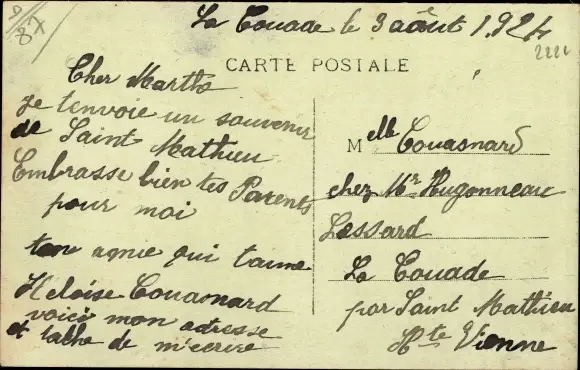 La Couade le 3 août 1924
87
2221
CARTE POSTALE
Cher Martho
je tenvoie un souvenir
de Saint Mathieu
Embrasse bien tes Parents
pour moi
ton agnie qui taime
Heloïse Couasnard
voici mon adresse
et tache de m'ecrire
Melle Couasnard
chez Mr Hugonneau
Lessard
La Couade
par Saint Mathieu
Hte Vienne